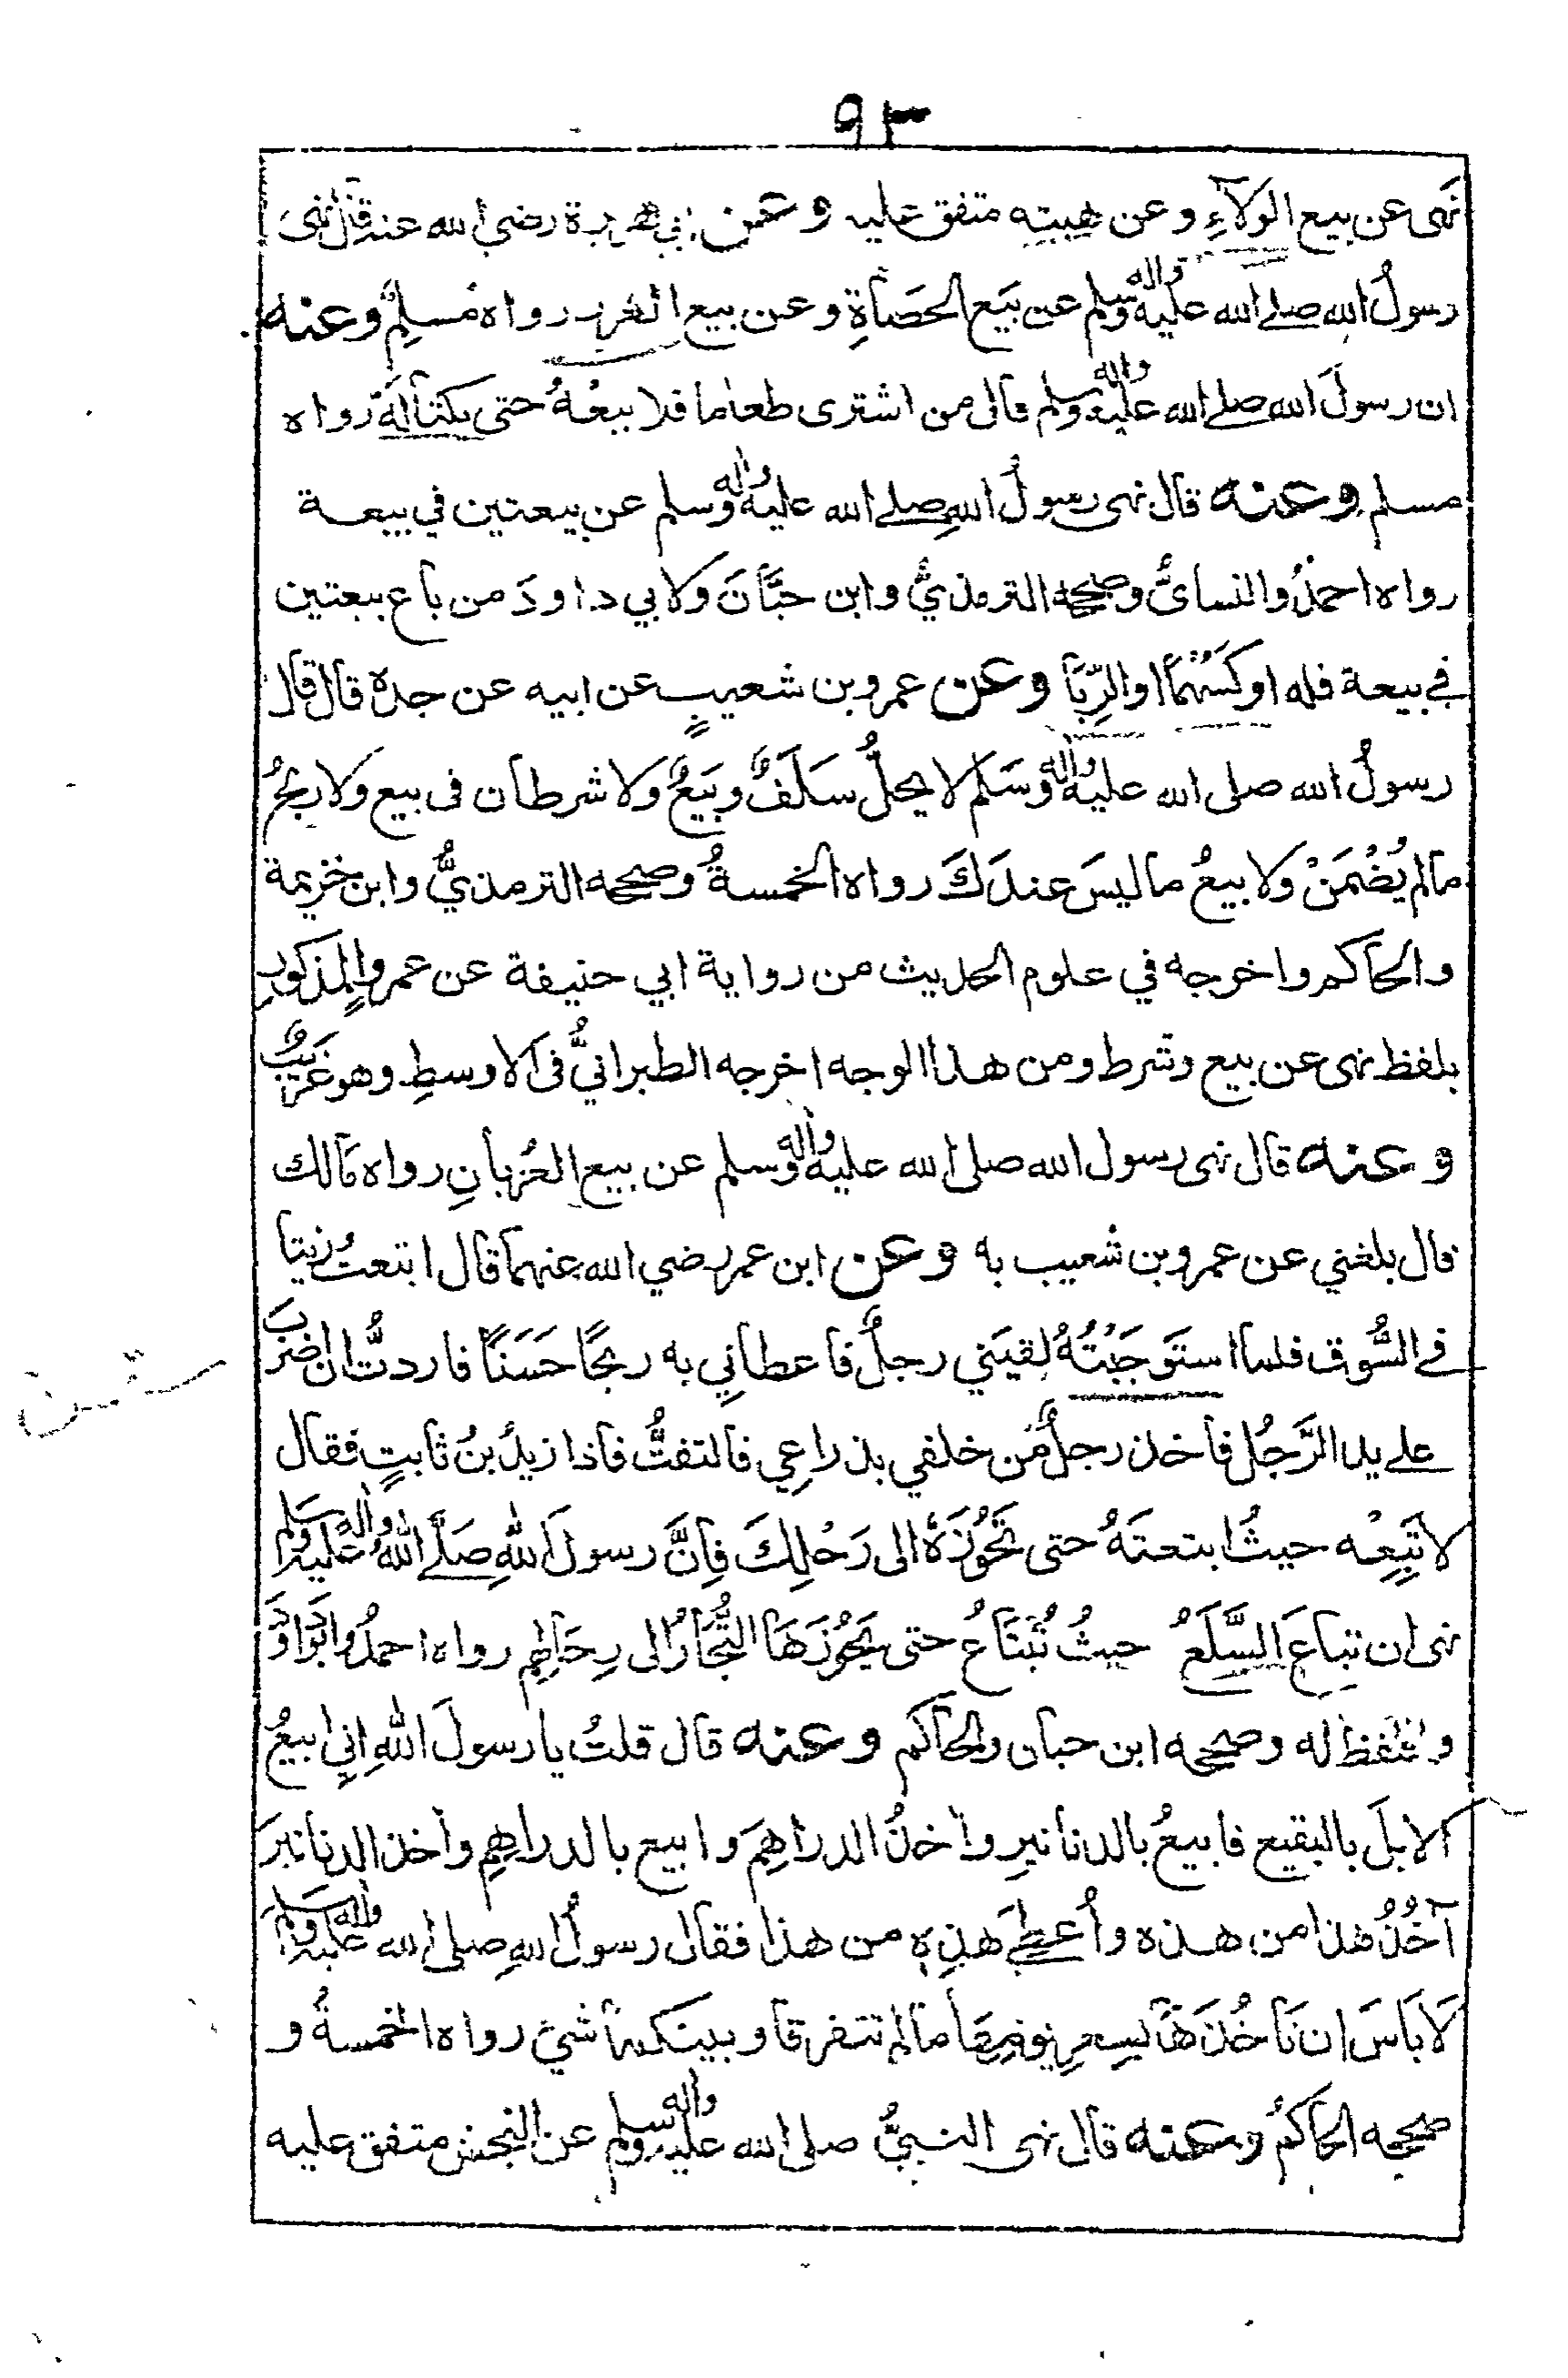 ٩٣
نهى عن بيع الولاءِ وعن هبته متفق عليه وعن ابي هريرة رضي الله عنه قال نهى
رسولُ الله صلے الله عليه واله وسلم عن بَيَع الحَصَاةِ وعن بيع الغرر رواه مُسلِمٌ وعنه
ان رسولَ الله صلے الله عليه واله وسلم قال من اشترى طعاما فلا يبعْهُ حتى يكتالَهُ رواه
مسلم وعنه قال نهى رسولُ اللهِ صلے الله عليه واله وسلم عن بيعتين في بيعة
رواه احمدُ والنسائیُّ وصححه الترمذيُّ وابن حبَّانَ ولابي داودَ من باع بيعتين
في بيعة فله اوكَسُهُمَا اوالرِّبَا وعن عمرو بن شعيبٍ عن ابيه عن جده قال قال
رسولُ الله صلى الله عليه واله وَسَلم لا يحلُّ سَلَفٌ وبَيَعٌ ولا شرطان فى بيع ولا ربحُ
مالم يُضْمَنْ ولا بيعُ ما ليسَ عندَكَ رواه الخمسةُ وصححه الترمذيُّ وابن خزيمة
والحاكم واخرجه في علوم الحديث من رواية ابي حنيفة عن عمروٍ المذكورِ
بلفظ نهى عن بيع وشرط ومن هذا الوجه اخرجه الطبرانيُّ فى الاوسطِ وهو غريبٌ
وعنه قال نهى رسول الله صلى الله عليه واله وسلم عن بيع العُربانِ رواه مالك
قال بلغني عن عمرو بن شعيب به وعن ابن عمر رضي الله عنهما قال ابتعتُ زيتا
في السُّوق فلما استَوجَبْتُهُ لقيَني رجلٌ فاعطاني به ربحًا حَسَنًا فاردتُّ ان اضربَ
علے يد الرَّجُل فاخذ رجلٌ من خلفي بذراعي فالتفتُّ فاذا زيدُ بنُ ثابتٍ فقال
لا تَبِعْه حيثُ ابتعتَهُ حتى تَحُوْزَهُ الى رَحْلِكَ فإنَّ رسولَ اللهِ صَلَّے اللهُ عليه واله وسلم
نهى ان تباعَ السَّلَعُ حيثُ تُبْتَاعُ حتى يَحُوْزَهَا التُّجَّارُ الى رِحَالِهم رواه احمدُ وابو داودَ
واللفظ له وصححه ابن حبان والحاكم وعنه قال قلتُ يا رسولَ اللهِ اني ابيعُ
الابلَ بالبقيع فابيعُ بالدنانيرِ واخذُ الدراهِمَ وابيع بالدراهِمِ واخذ الدنانيرَ
آخُذُ هذا من هذه وأُعطِے هذِهِ من هذا فقال رسولُ اللهِ صلى الله عليه واله وسلم
لَا بَاسَ ان تَاخُذَهَا بسعرِ يومِهَا مالم تتفرقا وبينكما شيئ رواه الخمسةُ و
صححه الحاكمُ وعنه قال نهى النبيُّ صلى الله عليه واله وسلم عن النجش متفق عليه